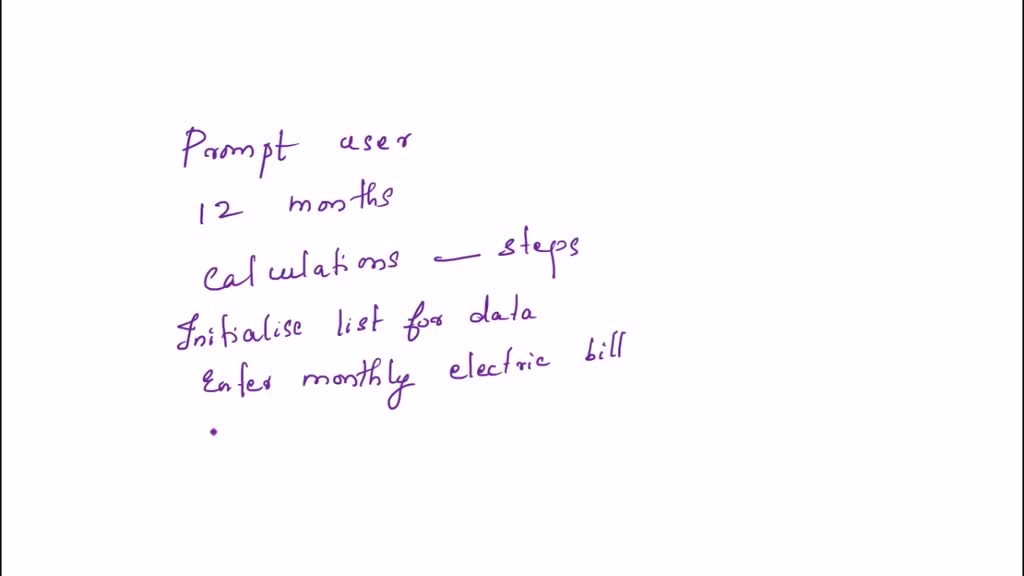 Prompt user
12 months
Calculations — steps
Initialise list for data
Enter monthly electric bill